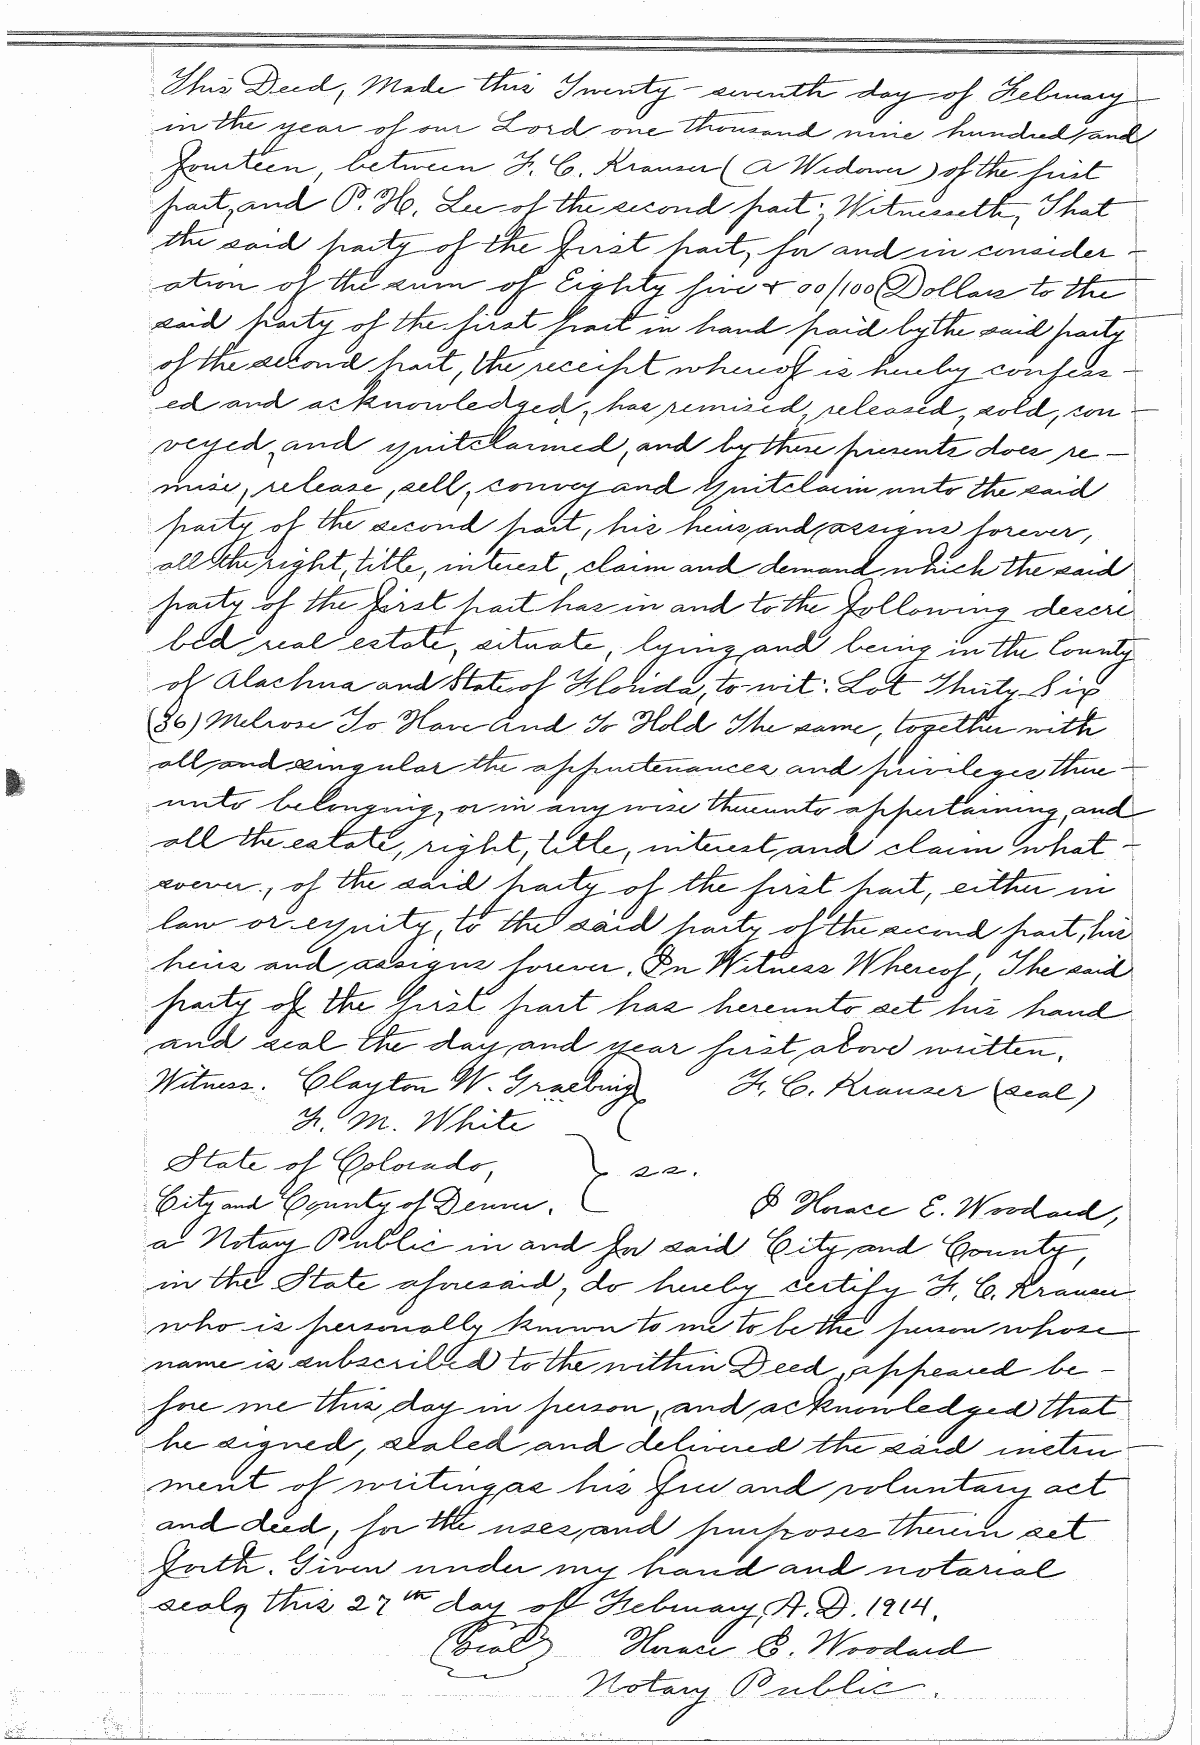 This Deed, Made this Twenty-seventh day of February
in the year of our Lord one thousand nine hundred and
fourteen, between F. C. Krauser (a Widower) of the first
part, and P. H. Lee of the second part; Witnesseth, That
the said party of the first part, for and in consider-
ation of the sum of Eighty five & 00/100 Dollars to the
said party of the first part in hand paid by the said party
of the second part, the receipt whereof is hereby confess-
ed and acknowledged, has remised, released, sold, con-
veyed, and quitclaimed, and by these presents does re-
mise, release, sell, convey and quitclaim unto the said
party of the second part, his heirs and assigns forever,
all the right, title, interest, claim and demand which the said
party of the first part has in and to the following descri
bed real estate, situate, lying and being in the County
of Alachua and State of Florida, to wit: Lot Thirty Six
(36) Melrose To Have and To Hold The same, together with
all and singular the appurtenances and privileges there-
unto belonging, or in any wise thereunto appertaining, and
all the estate, right, title, interest and claim what-
soever, of the said party of the first part, either in
law or equity, to the said party of the second part, his
heirs and assigns forever. In Witness Whereof, The said
party of the first part has hereunto set his hand
and seal the day and year first above written.
Witness. Clayton W. Graebing F. C. Krauser (seal)
F. M. White
State of Colorado, } ss.
City and County of Denver.
I Horace E. Woodard,
a Notary Public in and for said City and County,
in the State aforesaid, do hereby certify F. C. Krauser
who is personally known to me to be the person whose
name is subscribed to the within Deed, appeared be-
fore me this day in person, and acknowledged that
he signed, sealed and delivered the said instru-
ment of writing as his free and voluntary act
and deed, for the uses and purposes therein set
forth. Given under my hand and notarial
seal, this 27th day of February, A. D. 1914.
(Seal) Horace E. Woodard
Notary Public.